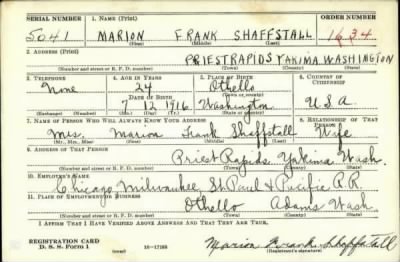 SERIAL NUMBER 1. NAME (Print) ORDER NUMBER
5041 MARION FRANK SHAFFSTALL 1634
(First) (Middle) (Last)
2. ADDRESS (Print)
PRIEST RAPIDS YAKIMA WASHINGTON
(Number and street or R. F. D. number) (Town) (County) (State)
3. TELEPHONE 4. AGE IN YEARS 5. PLACE OF BIRTH 6. COUNTRY OF CITIZENSHIP
None 24 Othello
DATE OF BIRTH (Town or county)
7 12 1916 Washington U.S.A.
(Exchange) (Number) (Mo.) (Day) (Yr.) (State or country)
7. NAME OF PERSON WHO WILL ALWAYS KNOW YOUR ADDRESS 8. RELATIONSHIP OF THAT PERSON
Mrs. Marion Frank Shaffstall Wife
(Mr., Mrs., Miss) (First) (Middle) (Last)
9. ADDRESS OF THAT PERSON
Priest Rapids Yakima Wash.
(Number and street or R. F. D. number) (Town) (County) (State)
10. EMPLOYER'S NAME
Chicago, Milwaukee, St Paul & Pacific R.R.
11. PLACE OF EMPLOYMENT OR BUSINESS
Othello Adams Wash.
(Number and street or R. F. D. number) (Town) (County) (State)
I AFFIRM THAT I HAVE VERIFIED ABOVE ANSWERS AND THAT THEY ARE TRUE.
REGISTRATION CARD
D. S. S. Form 1 16-17105 Marion Frank Shaffstall
(Registrant's signature)